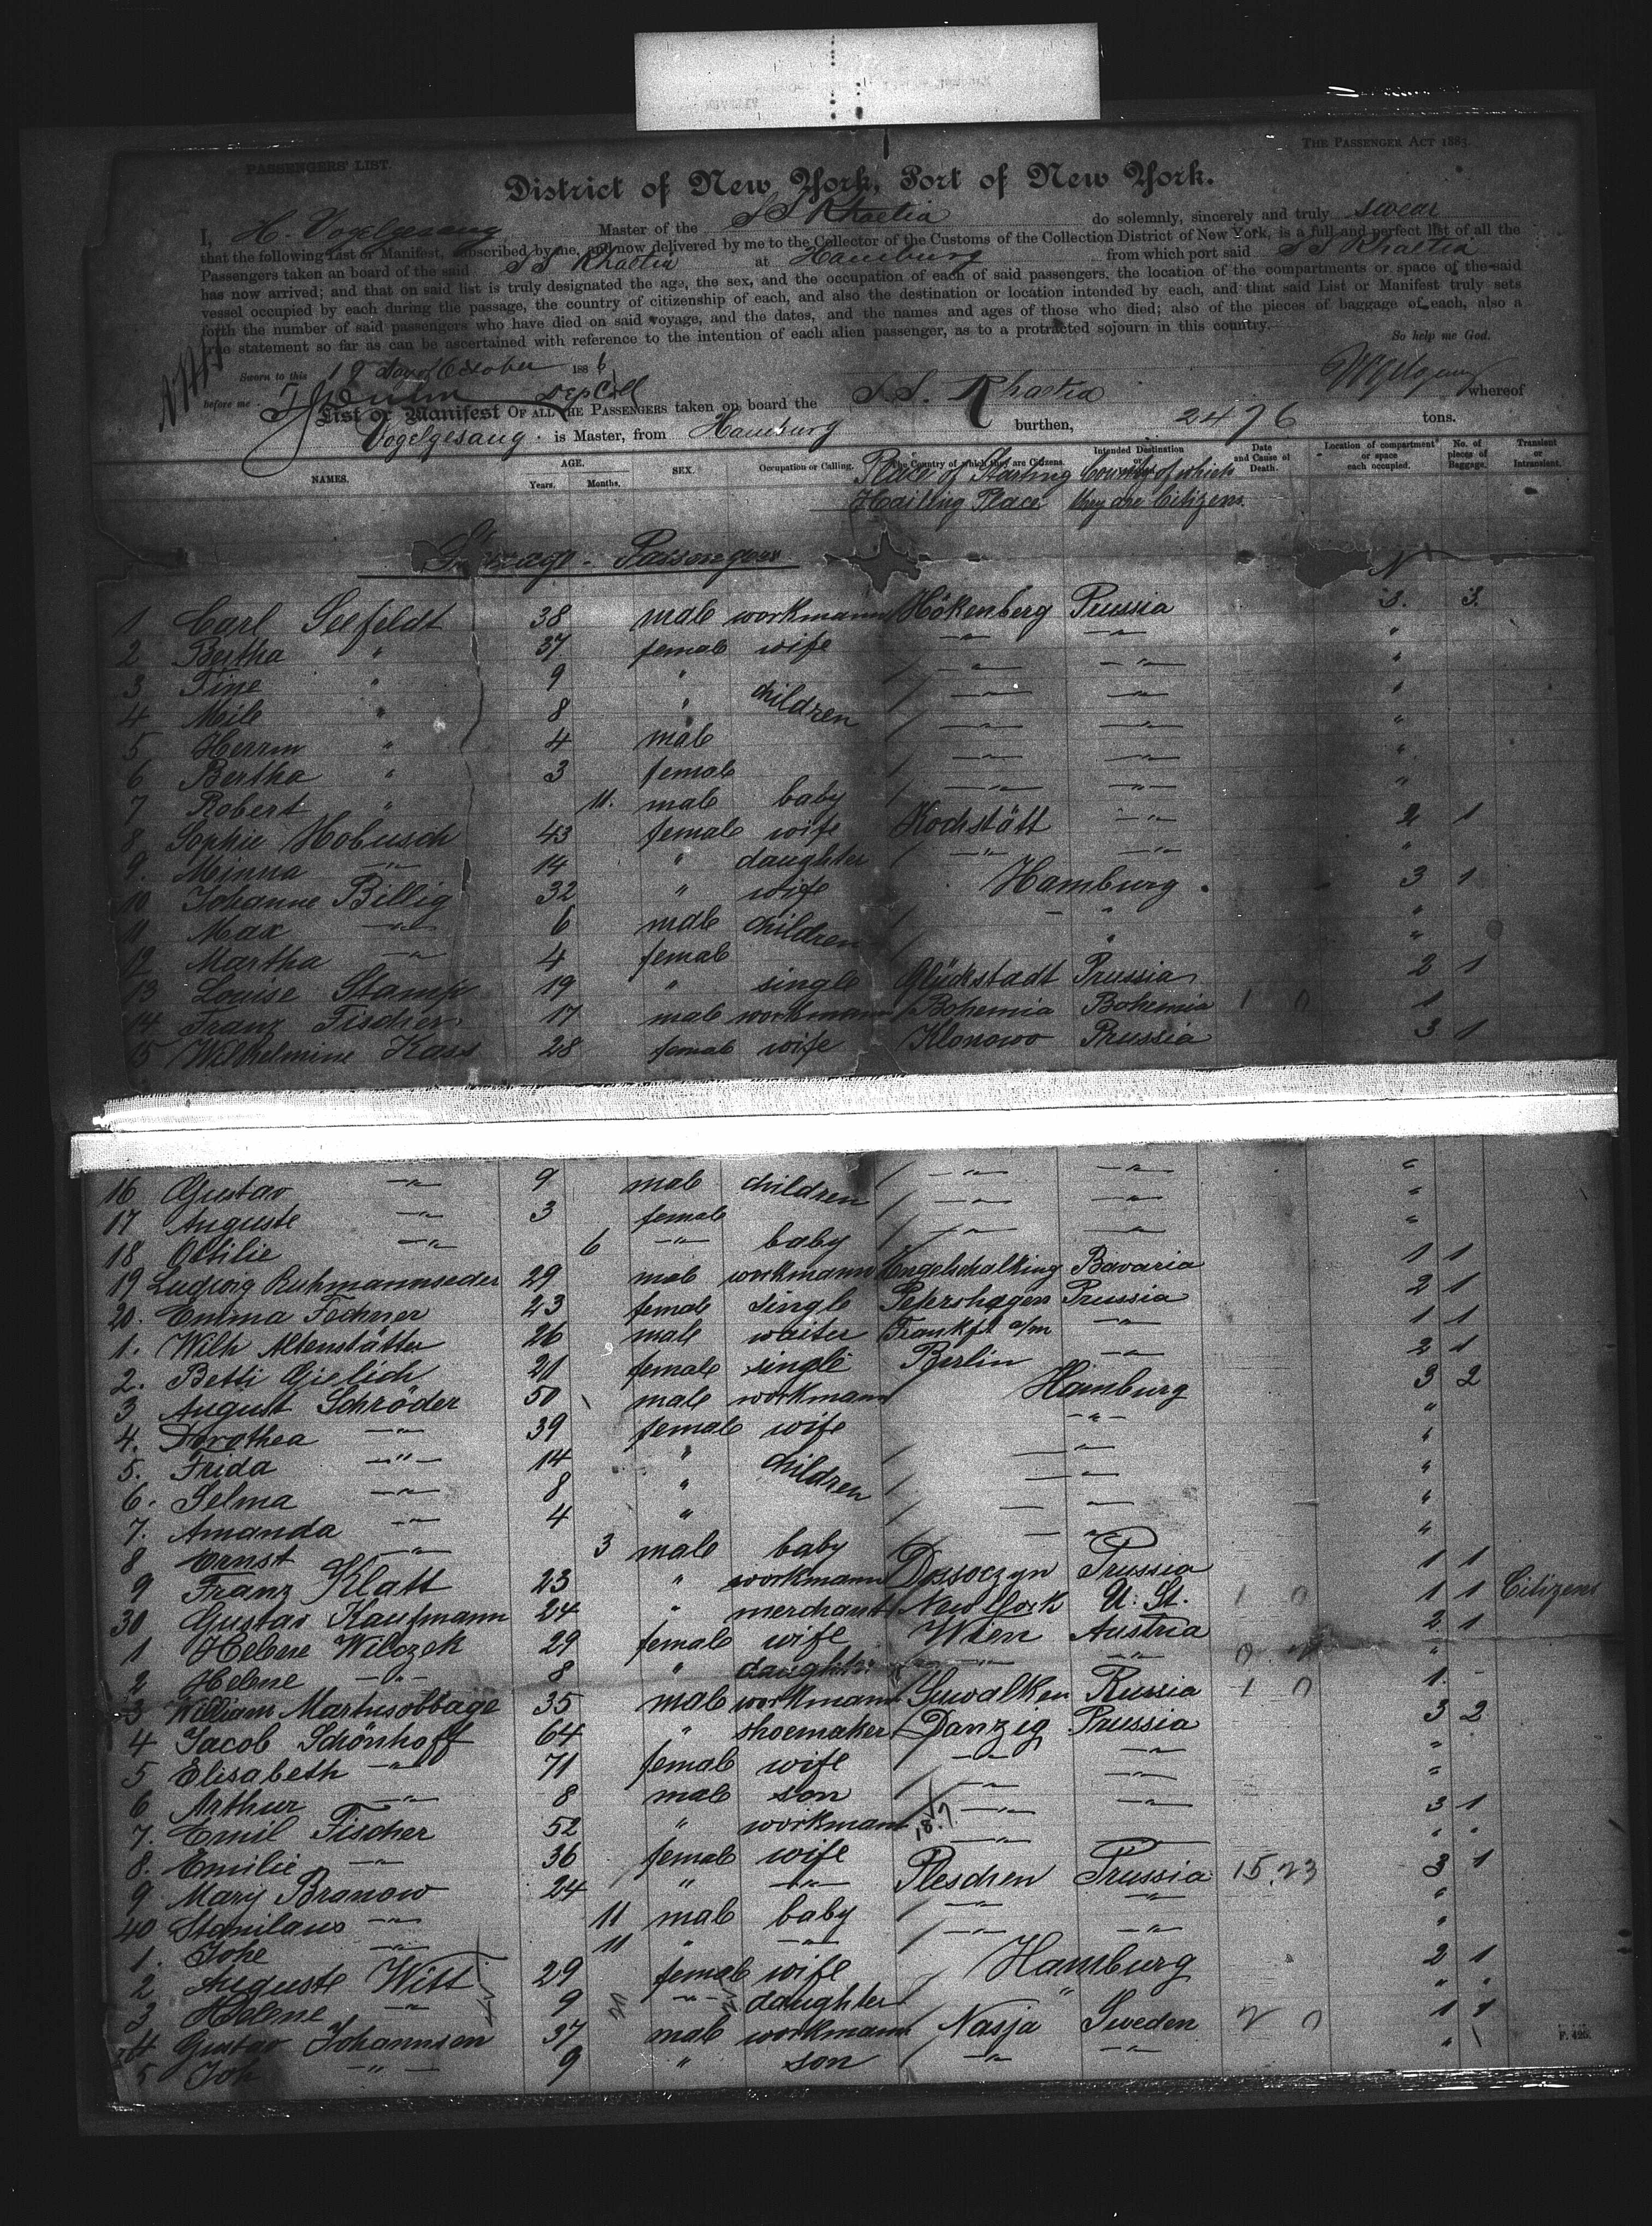 PASSENGERS' LIST.
THE PASSENGER ACT 1883.
District of New York, Port of New York.
I, H. Vogelgesang Master of the S S Rhaetia do solemnly, sincerely and truly swear
that the following List or Manifest, subscribed by me, and now delivered by me to the Collector of the Customs of the Collection District of New York, is a full and perfect list of all the
Passengers taken on board of the said S S Rhaetia at Hamburg from which port said S S Rhaetia
has now arrived; and that on said list is truly designated the age, the sex, and the occupation of each of said passengers, the location of the compartments or space of the said
vessel occupied by each during the passage, the country of citizenship of each, and also the destination or location intended by each, and that said List or Manifest truly sets
forth the number of said passengers who have died on said voyage, and the dates, and the names and ages of those who died; also of the pieces of baggage of each, also a
true statement so far as can be ascertained with reference to the intention of each alien passenger, as to a protracted sojourn in this country.
So help me God.
Sworn to this 18 day of October 1886
before me
List or Manifest OF ALL THE PASSENGERS taken on board the S. S. Rhaetia whereof
Vogelgesang is Master, from Hamburg burthen, 2476 tons.
NAMES. AGE. Years. Months. SEX. Occupation or Calling. The Country of which they are Citizens. Intended Destination or Date and Cause of Death. Location of compartment or space each occupied. No. of pieces of Baggage. Transient or Intransient.
Place of Starting County of which
Hailing Place they are Citizens.
Passengers N
1 Carl Seefeldt 38 male workmann Hökenberg Prussia 3. 3.
2 Bertha " 37 female wife —"— —"— "
3 Tine " 9 " children —"— —"— "
4 Mile " 8 " —"— —"— "
5 Herrm " 4 male —"— —"— "
6 Bertha " 3 female —"— —"— "
7 Robert " 11. male baby —"— —"— "
8 Sophie Hobusch 43 female wife Kochstätt —"— 2 1
9. Minna —"— 14 " daughter —"— —"— "
10 Johanne Billig 32 " wife Hamburg. 3 1
11 Max —"— 6 male children — " "
12 Martha —"— 4 female " "
13 Louise Stamp 19 " single Glückstadt Prussia 2 1
14 Franz Fischer 17 male workmann Bohemia Bohemia 1 0 1
15 Wilhelmine Kass 28 female wife Klonowo Prussia 3 1
16 Gustav —"— 9 male children —"— —"— "
17 Auguste —"— 3 female —"— —"— "
18 Ottilie —"— 6 —"— baby —"— —"— "
19 Ludwig Ruhmannseder 29 male workmann Engelschalking Bavaria 1 1
20. Emma Fechner 23 female single Petershagen Prussia 2 1
1. Wilh Altenstätter 26 male waiter Frankft a/m —"— 1 1
2. Betti Gielich 21 female single Berlin —"— 2 1
3 August Schröder 50 male workmann Hamburg 3 2
4. Dorothea —"— 39 female wife —"— "
5. Frida —"— 14 " children —"— "
6. Selma —"— 8 " —"— "
7. Amanda —"— 4 " —"— "
8 Ernst —"— 3 male baby —"— "
9 Franz Klatt 23 " workmann Dossoczyn Prussia 1 1
30 Gustav Kaufmann 24 " merchant New York U. St. 1 0 1 1 Citizens
1 Helene Wilczek 29 female wife Wien Austria 2 1
2 Helene —"— 8 " daughter —"— —"— "
3 William 35 male workmann Suwalken Russia 1 0 1. -
4 Jacob Schönhoff 64 " shoemaker Danzig Prussia 3 2
5 Elisabeth —"— 71 female wife —"— —"— "
6 Arthur —"— 8 male son —"— —"— "
7. Emil Fischer 52 " workmann —"— —"— 3 1
8. Emilie —"— 36 female wife —"— — " "
9 Mary Branow 24 " —"— Pleschen Prussia 15.23 3 1
40 Stanilaus —"— 11 male baby —"— —"— "
1. Johe —"— 11 " —"— —"— —"— "
2 Auguste Witt 29 female wife Hamburg 2 1
3 Helene —"— 9 —"— daughter " " "
4 Gustav Johannsen 37 male workmann Nasja Sweden 2 0 1 1
5 Joh —"— 9 " son —"— —"— "
F. 425.